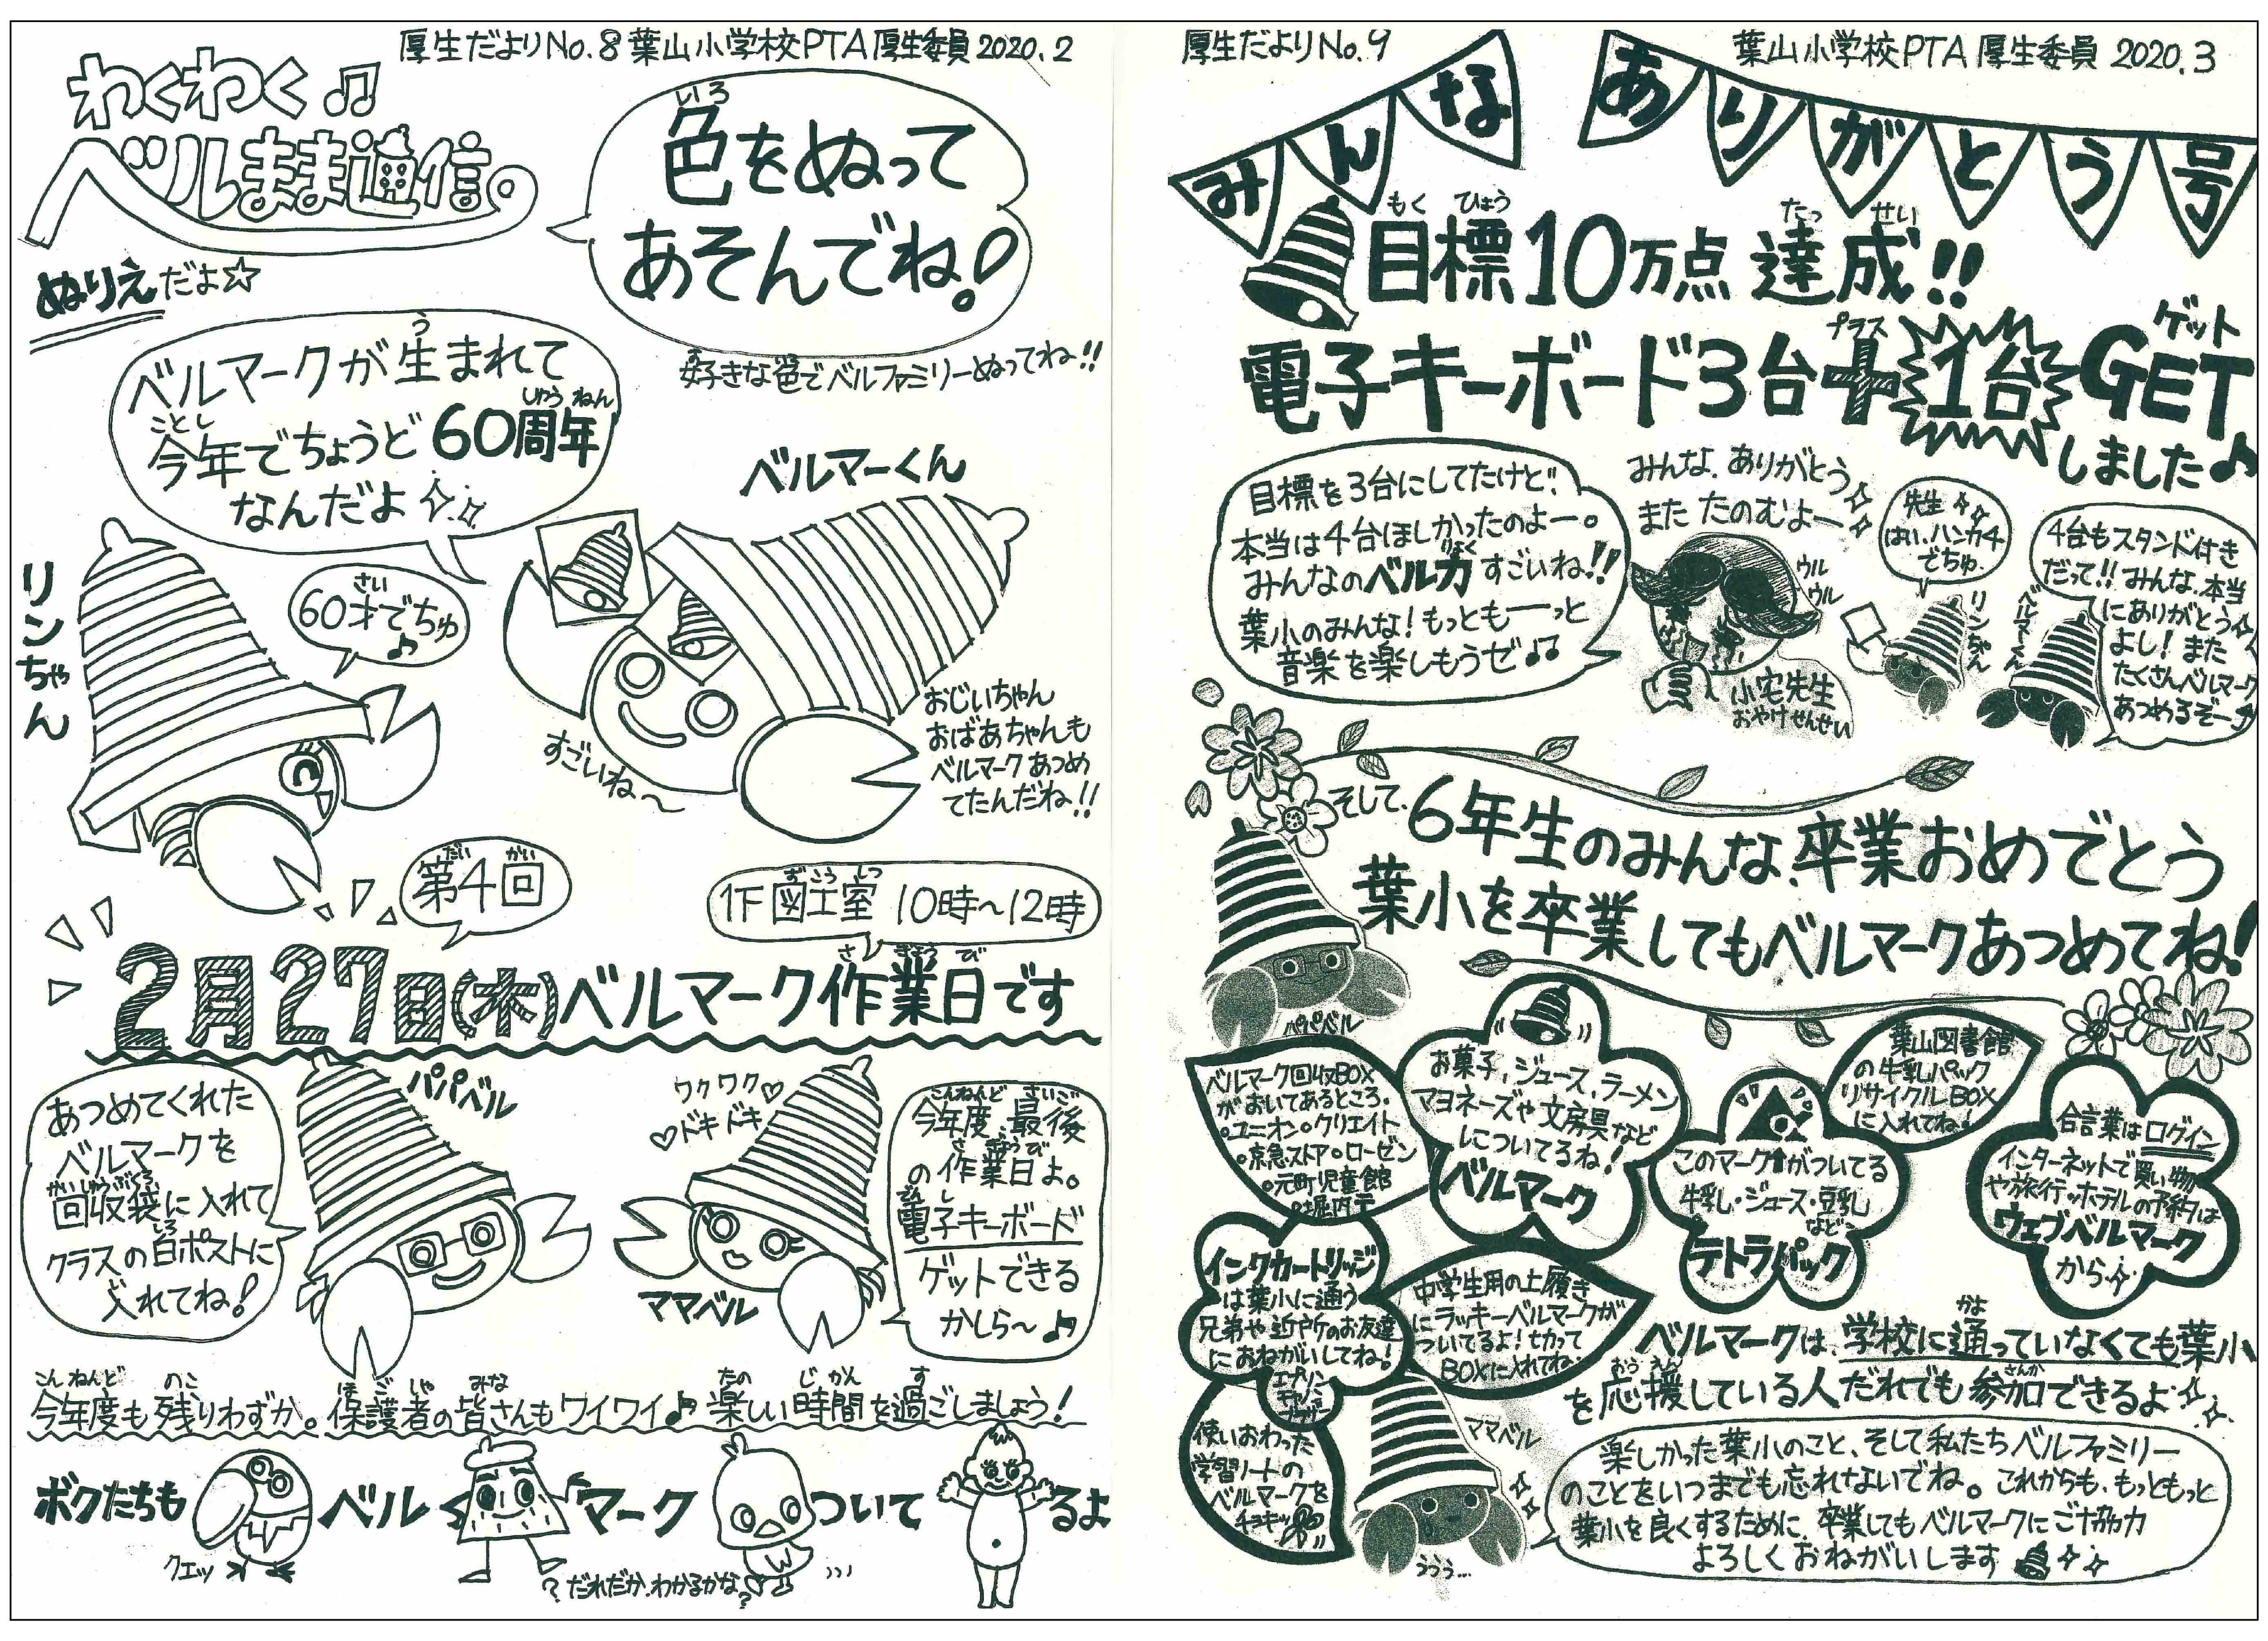 厚生だよりNo.8 葉山小学校PTA厚生委員 2020.2
わくわく♫
ベルまま通信。
ぬりえだよ☆
色をぬって
あそんでね!
好きな色でベルファミリーぬってね!!
ベルマークが生まれて
今年でちょうど60周年
なんだよ
ベルマーくん
リンちゃん
60才でちゅ♪
すごいね〜
おじいちゃん
おばあちゃんも
ベルマークあつめ
てたんだね!!
第4回
1F 図工室 10時〜12時
2月27日(木)ベルマーク作業日です
あつめてくれた
ベルマークを
回収袋に入れて
クラスの白ポストに
入れてね!
パパベル
ワクワク♡
♡ドキドキ
ママベル
今年度、最後
の作業日よ。
電子キーボード
ゲットできる
かしら〜♫
今年度も残りわずか。保護者の皆さんもワイワイ♫楽しい時間を過ごしましょう!
ボクたちも ベル マーク ついて るよ
クエッ
?だれだか、わかるかな?
厚生だよりNo.9 葉山小学校PTA厚生委員 2020.3
みんな ありがとう号
目標10万点 達成!!
電子キーボード3台+1台GET
しました♪
目標を3台にしてたけど、
本当は4台ほしかったのよー。
みんなのベル力すごいね!!
葉小のみんな!もっともーーっと
音楽を楽しもうゼ♫
みんな、ありがとう
また たのむよー
ウル
ウル
小宅先生
おやけせんせい
先生
はい、ハンカチ
でちゅ
リンちゃん
ベルマーくん
4台もスタンド付き
だって!!みんな、本当
にありがとう
よし!また
たくさんベルマーク
あつめるぞー♪
そして、6年生のみんな、卒業おめでとう
葉小を卒業してもベルマークあつめてね!
パパベル
ベルマーク回収BOX
がおいてあるところ。
。ユニオン。クリエイト
。京急ストア。ローゼン
。元町児童館
お菓子、ジュース、ラーメン
マヨネーズや文房具など
についてるね!
ベルマーク
このマーク⬆がついてる
牛乳・ジュース・豆乳
など
テトラパック
葉山図書館
の牛乳パック
リサイクルBOX
に入れてね!
合言葉はログイン
インターネットで買い物
や旅行、ホテルの予約は
ウェブベルマーク
から
インクカートリッジ
は葉小に通う
兄弟や近所のお友達
におねがいしてね!
エプソン
中学生用の上履き
にラッキーベルマークが
ついてるよ!切って
BOXに入れてね
使いおわった
学習ノートの
ベルマークを
チョキッ
ベルマークは、学校に通っていなくても葉小
を応援している人だれでも参加できるよ
ママベル
ううう…
楽しかった葉小のこと、そして私たちベルファミリー
のことをいつまでも忘れないでね。これからも、もっともっと
葉小を良くするために、卒業してもベルマークにご協力
よろしくおねがいします